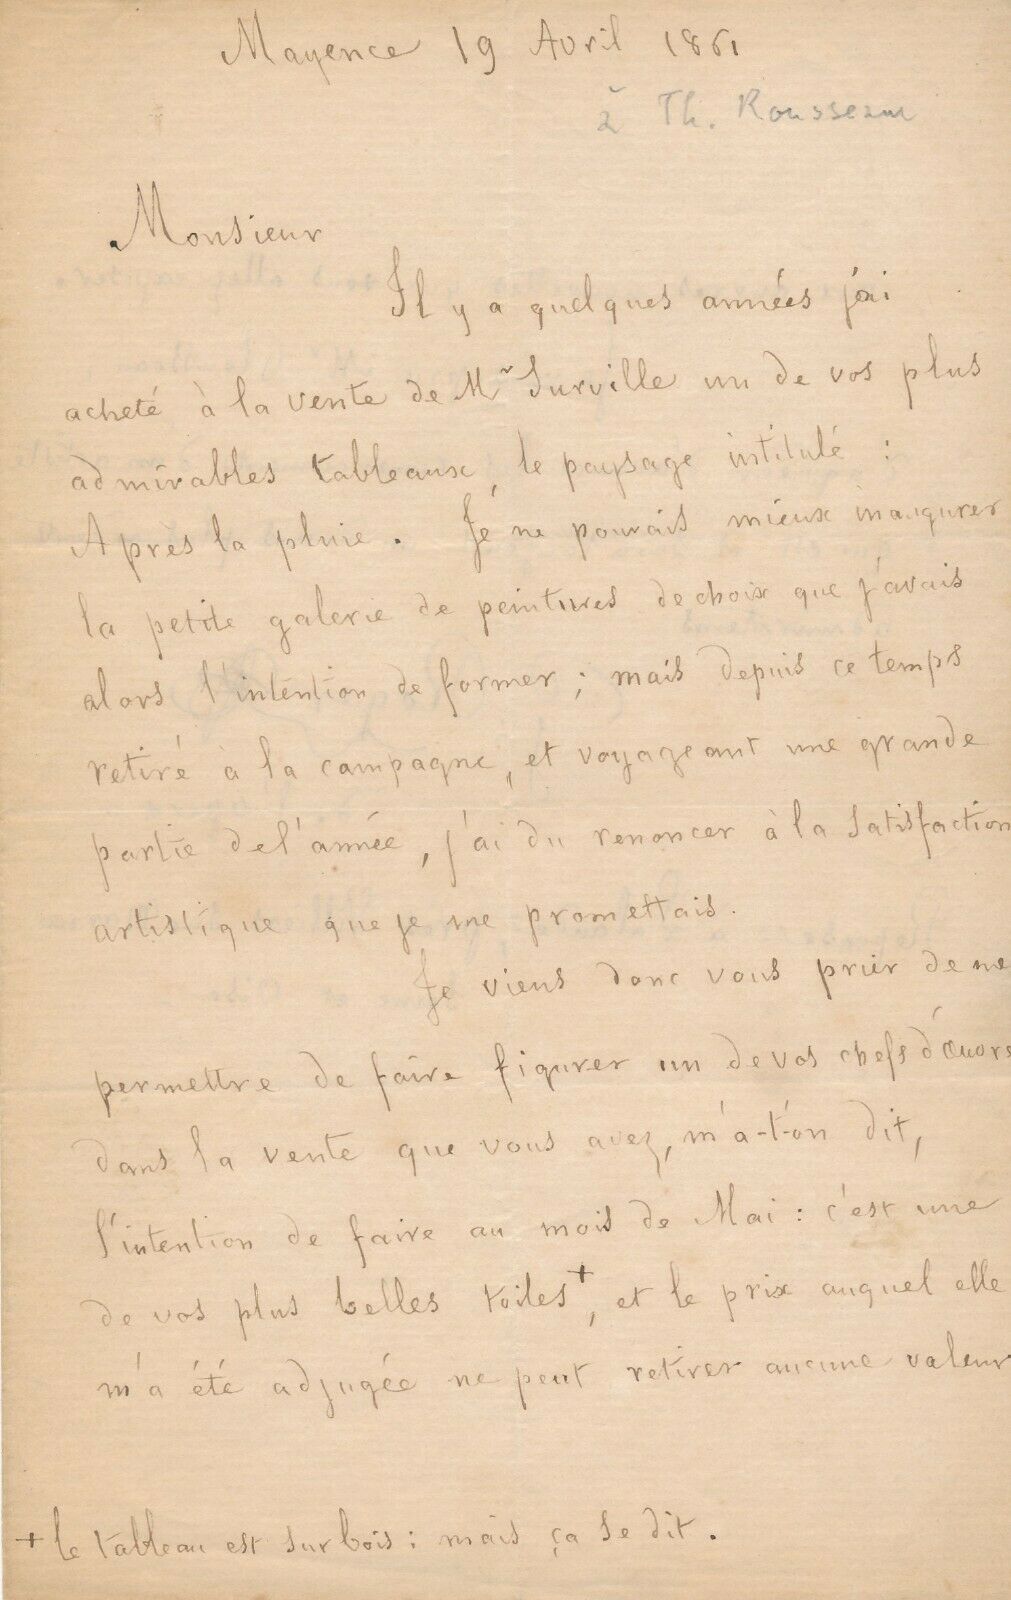 Mayence 19 Avril 1861
à Th. Rousseau
Monsieur
Il y a quelques années j'ai
acheté à la vente de Mr Surville un de vos plus
admirables tableaux, le paysage intitulé :
Après la pluie. Je ne pouvais mieux inaugurer
la petite galerie de peintures de choix que j'avais
alors l'intention de former ; mais depuis ce temps
retiré à la campagne, et voyageant une grande
partie de l'année, j'ai du renoncer à la satisfaction
artistique que je me promettais.
Je viens donc vous prier de me
permettre de faire figurer un de vos chefs d'œuvre
dans la vente que vous avez, m'a-t-on dit,
l'intention de faire au mois de Mai : c'est une
de vos plus belles toiles+, et le prix auquel elle
m'a été adjugée ne peut retirer aucune valeur
+ le tableau est sur bois : mais ça se dit.